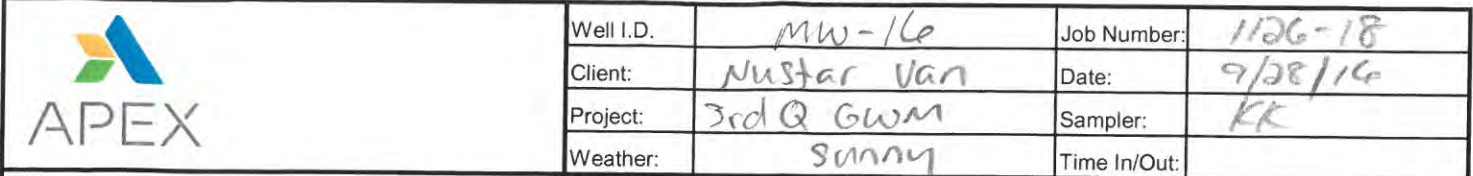 APEX
Well I.D. MW-16 Job Number: 1126-18
Client: Nustar Van Date: 9/28/16
Project: 3rd Q GWM Sampler: KK
Weather: Sunny Time In/Out: